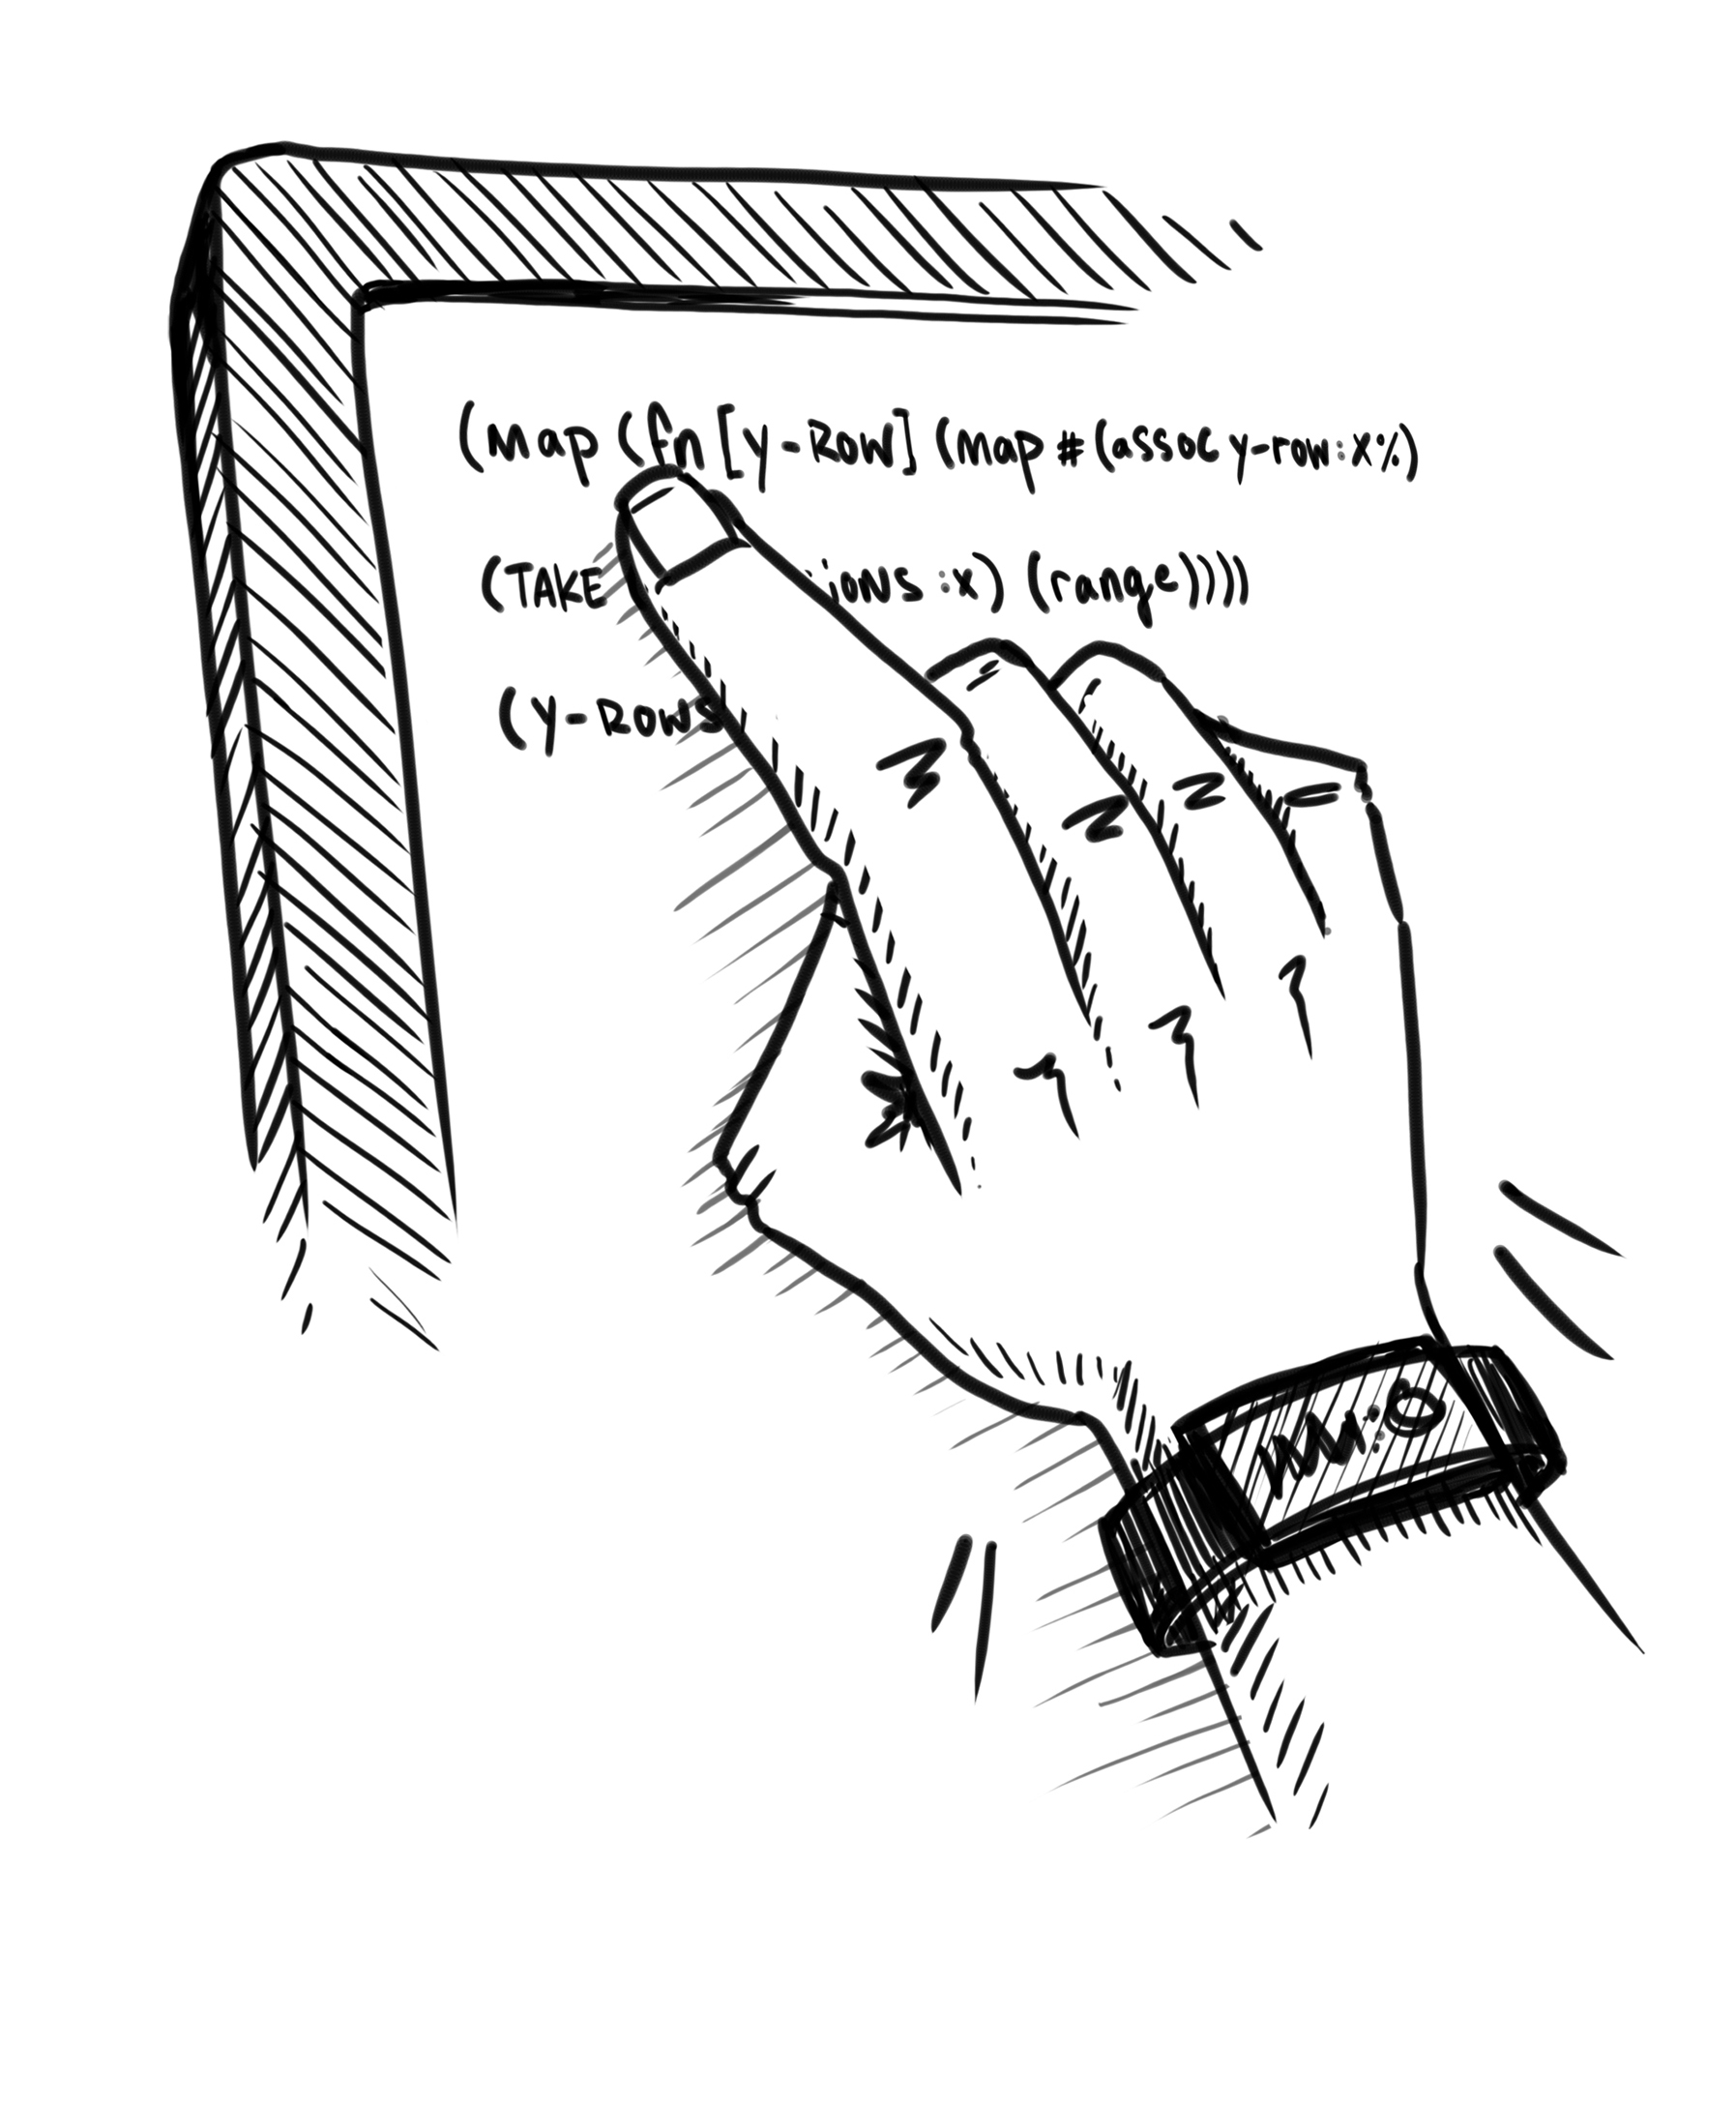 (map (fn [y-Row] (map #(assoc y-row :x %)
(TAKE :x) (range))))
(Y-ROWS